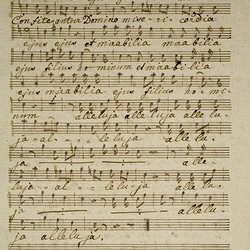 Confiteantur Domino miseri cordia
ejus ejus et mirabilia mirabilia
ejus filius ho minum et mirabilia
ejus mirabilia ejus filius ho mi
num alleluja alleluja allelu
ja al leluja allelu
ja alle
luja al le lu ja allelu
ja allelu
ja alleluja.